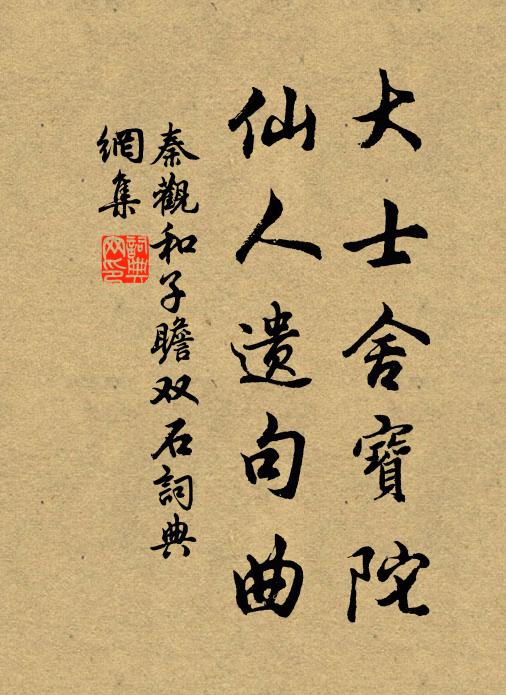 大士舍寶陀
仙人遺句曲
秦觀和子瞻双石詞典
網集
詞典網印